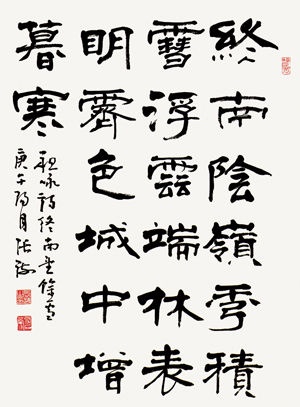 終南陰嶺秀積
雪浮雲端林表
明霽色城中增
暮寒
祖咏詩終南望餘雪
庚午陽月張海